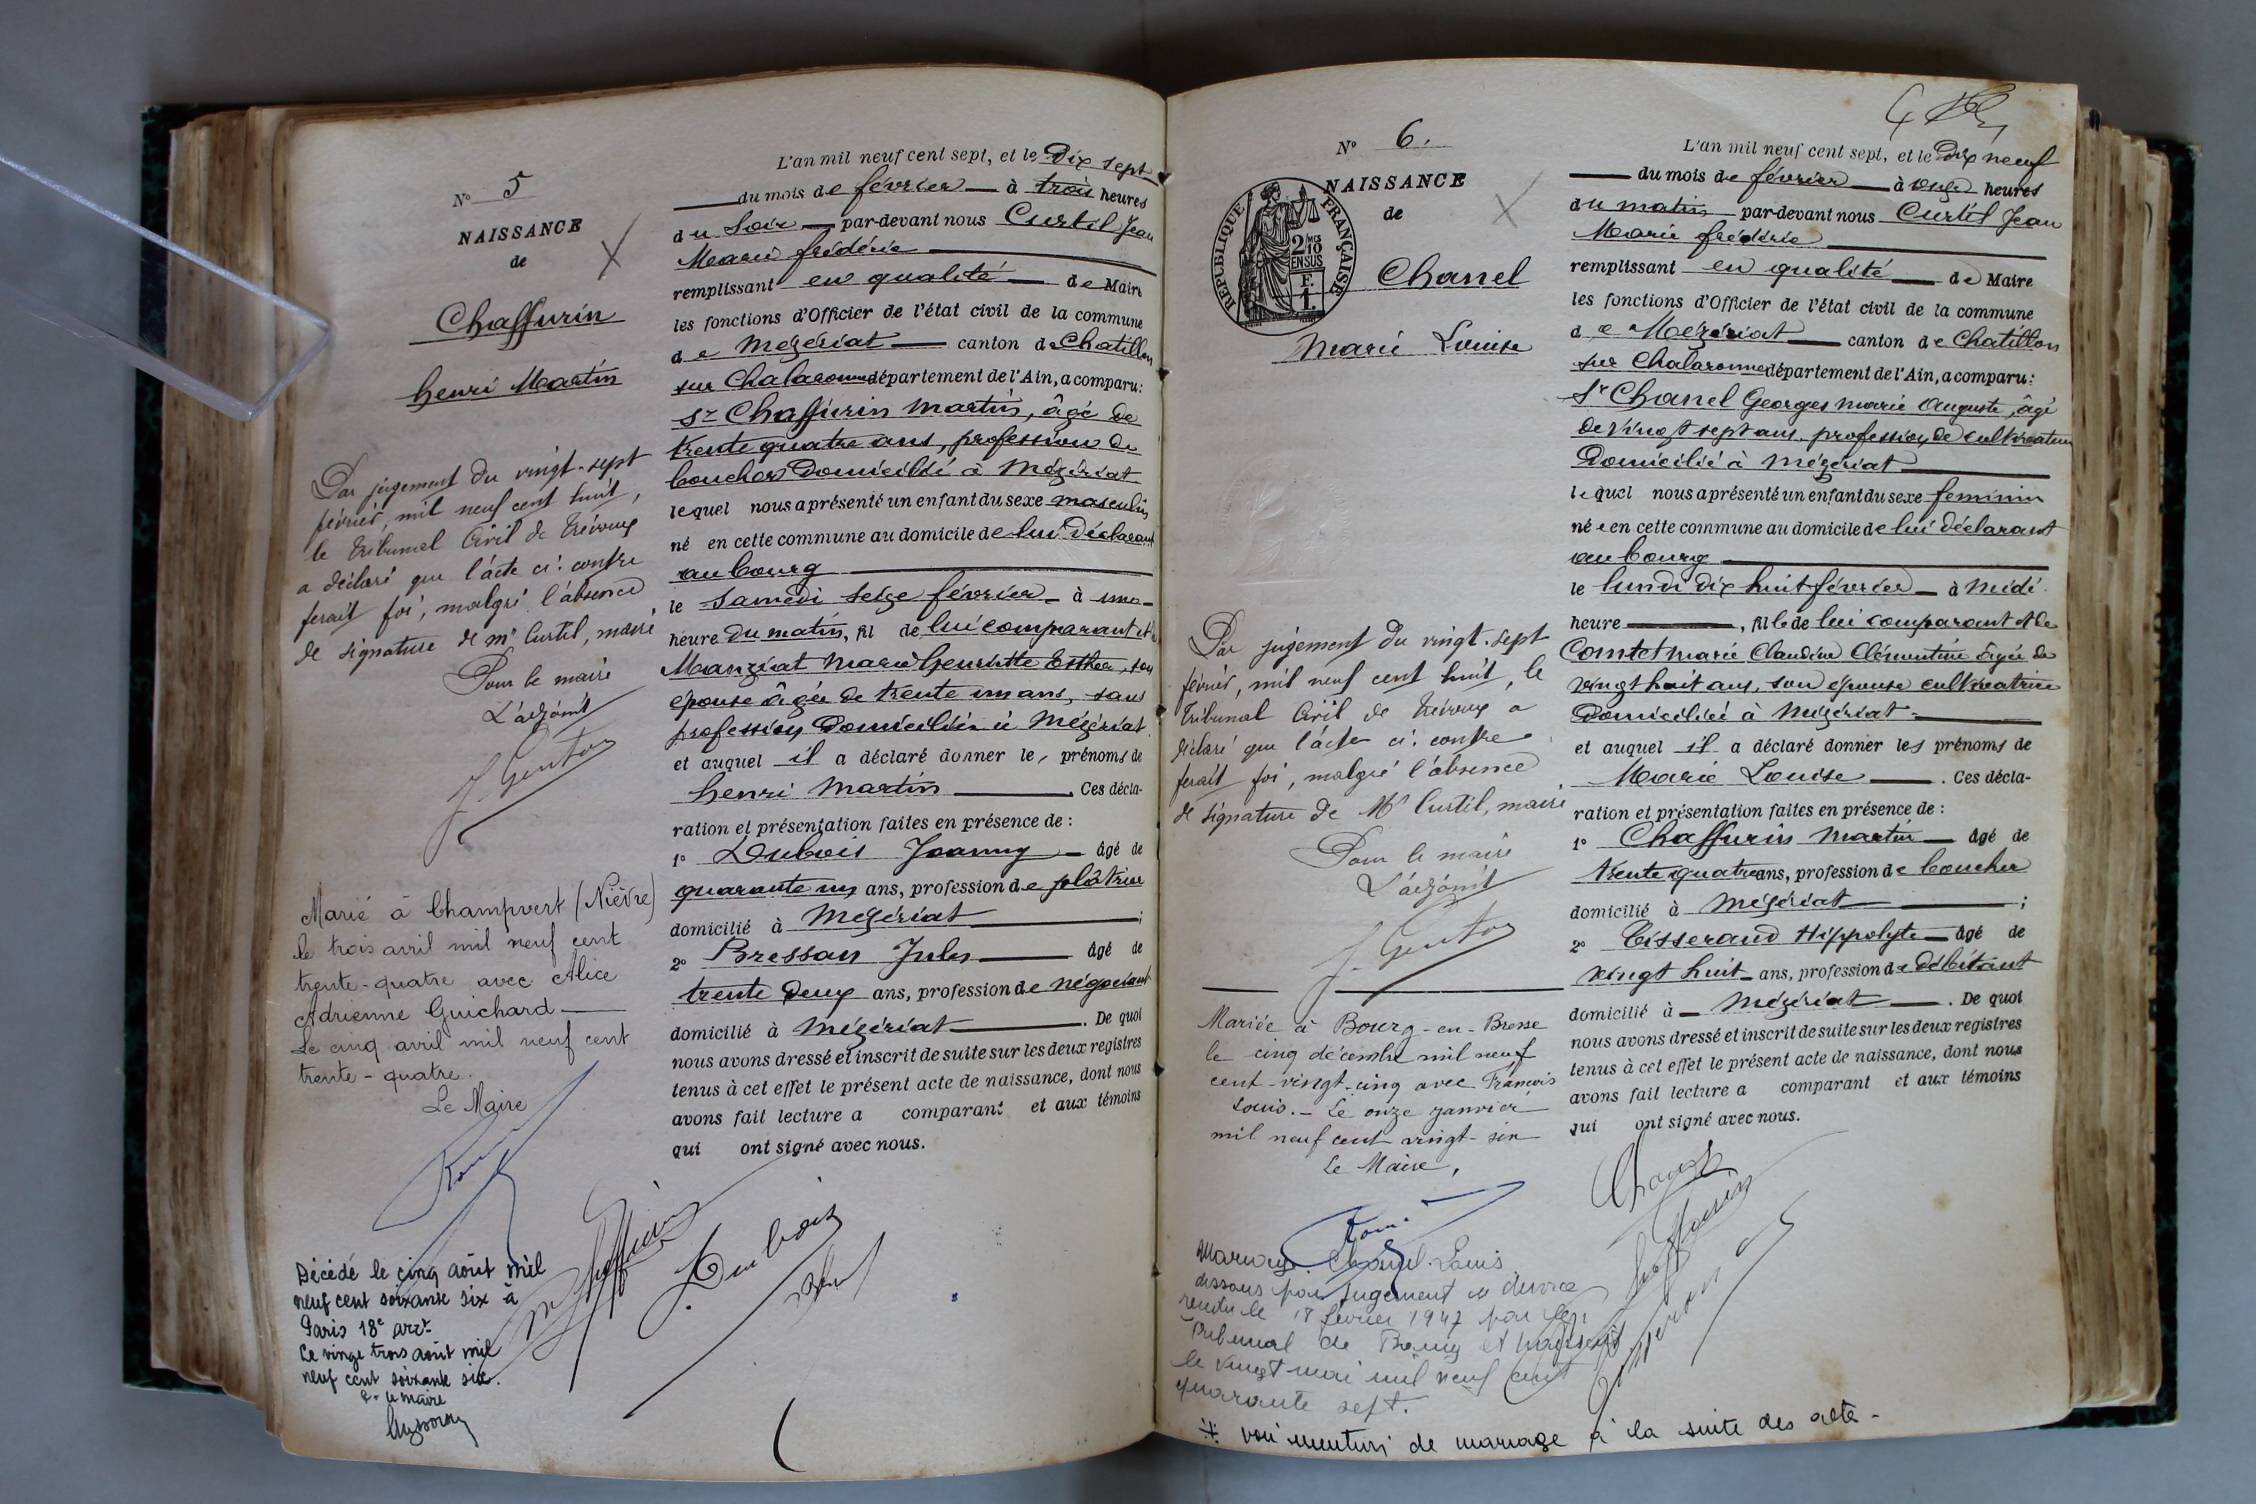 N° 5
NAISSANCE
de
Chaffurin
henri Martin
Par jugement du vingt-sept
février, mil neuf cent huit,
le tribunal Civil de Trévoux
a déclaré que l'acte ci-contre
ferait foi, malgré l'absence
de signature de Mr Curtil, maire
Pour le maire
L'adjoint
J. Genton
Marié à Champvert (Nièvre)
le trois avril mil neuf cent
trente-quatre avec Alice
Adrienne Guichard
Le cinq avril mil neuf cent
trente-quatre.
Le Maire
Décédé le cinq août mil
neuf cent soixante six à
Paris 18e arrt
Le vingt trois août mil
neuf cent soixante six.
le maire
L'an mil neuf cent sept, et le Dix sept
du mois de février à trois heures
du Soir par-devant nous Curtil Jean
Marie frédéric
remplissant en qualité de Maire
les fonctions d'Officier de l'état civil de la commune
de Mézériat canton de Chatillon
sur Chalaronne département de l'Ain, a comparu:
Sr Chaffurin Martin, âgé de
trente quatre ans, profession de
boucher Domicilié à Mézériat
lequel nous a présenté un enfant du sexe masculin
né en cette commune au domicile de lui Déclarant
au bourg
le Samedi seize février à une
heure du matin, fil de lui comparant et de
Manziat Marie henriette Esther, son
épouse âgée de trente un ans, sans
profession, Domiciliée à Mézériat
et auquel il a déclaré donner les prénoms de
henri Martin. Ces décla-
ration et présentation faites en présence de :
1° Dubois Joanny âgé de
quarante un ans, profession de plâtrier
domicilié à Mézériat ;
2° Bressan Jules âgé de
trente Deux ans, profession de négociant
domicilié à Mézériat. De quoi
nous avons dressé et inscrit de suite sur les deux registres
tenus à cet effet le présent acte de naissance, dont nous
avons fait lecture a comparant et aux témoins
qui ont signé avec nous.
M Chaffurin
J. Dubois
N° 6.
NAISSANCE
de
RÉPUBLIQUE FRANÇAISE
2/MES
10
EN SUS
F.
1
Chanel
Marie Louise
Par jugement du vingt-sept
février, mil neuf cent huit, le
tribunal Civil de Trévoux a
déclaré que l'acte ci-contre
ferait foi, malgré l'absence
de signature de Mr Curtil, maire
Pour le maire
L'adjoint
J. Genton
Mariée à Bourg-en-Bresse
le cinq décembre mil neuf
cent-vingt-cinq avec François
Louis. – Le onze janvier
mil neuf cent vingt-six
Le Maire,
Mariage Chanel-Louis
dissous par jugement de divorce
rendu le 18 février 1947 par le
Tribunal de Bourg et
le vingt mai mil neuf cent
quarante sept.
voir mention de mariage à la suite des acte-
L'an mil neuf cent sept, et le Dix neuf
du mois de février à onze heures
du matin par-devant nous Curtil Jean
Marie frédéric
remplissant en qualité de Maire
les fonctions d'Officier de l'état civil de la commune
de Mézériat canton de Chatillon
sur Chalaronne département de l'Ain, a comparu:
Sr Chanel Georges Marie Auguste, âgé
de vingt sept ans, profession de cultivateur
Domicilié à Mézériat
lequel nous a présenté un enfant du sexe feminin
née en cette commune au domicile de lui déclarant
au bourg
le lundi dix huit février à midi
heure, fille de lui comparant et de
Comtet Marie Claudine Clémentine âgée de
vingt huit ans, son épouse cultivatrice
Domiciliée à Mézériat
et auquel il a déclaré donner les prénoms de
Marie Louise. Ces décla-
ration et présentation faites en présence de :
1° Chaffurin Martin âgé de
trente quatre ans, profession de boucher
domicilié à Mézériat ;
2° Tisserand Hippolyte âgé de
vingt huit ans, profession de débitant
domicilié à Mézériat. De quoi
nous avons dressé et inscrit de suite sur les deux registres
tenus à cet effet le présent acte de naissance, dont nous
avons fait lecture a comparant et aux témoins
qui ont signé avec nous.
Chanel
Chaffurin
Tisserand